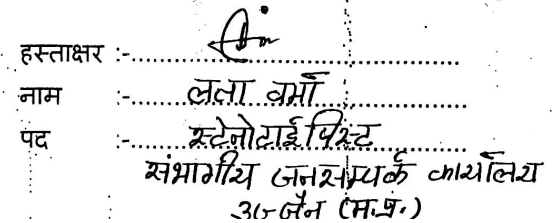 हस्ताक्षर :-
नाम :- लता वर्मा
पद :- स्टेनोटाईपिस्ट
संभागीय जनसम्पर्क कार्यालय
उज्जैन (म.प्र.)